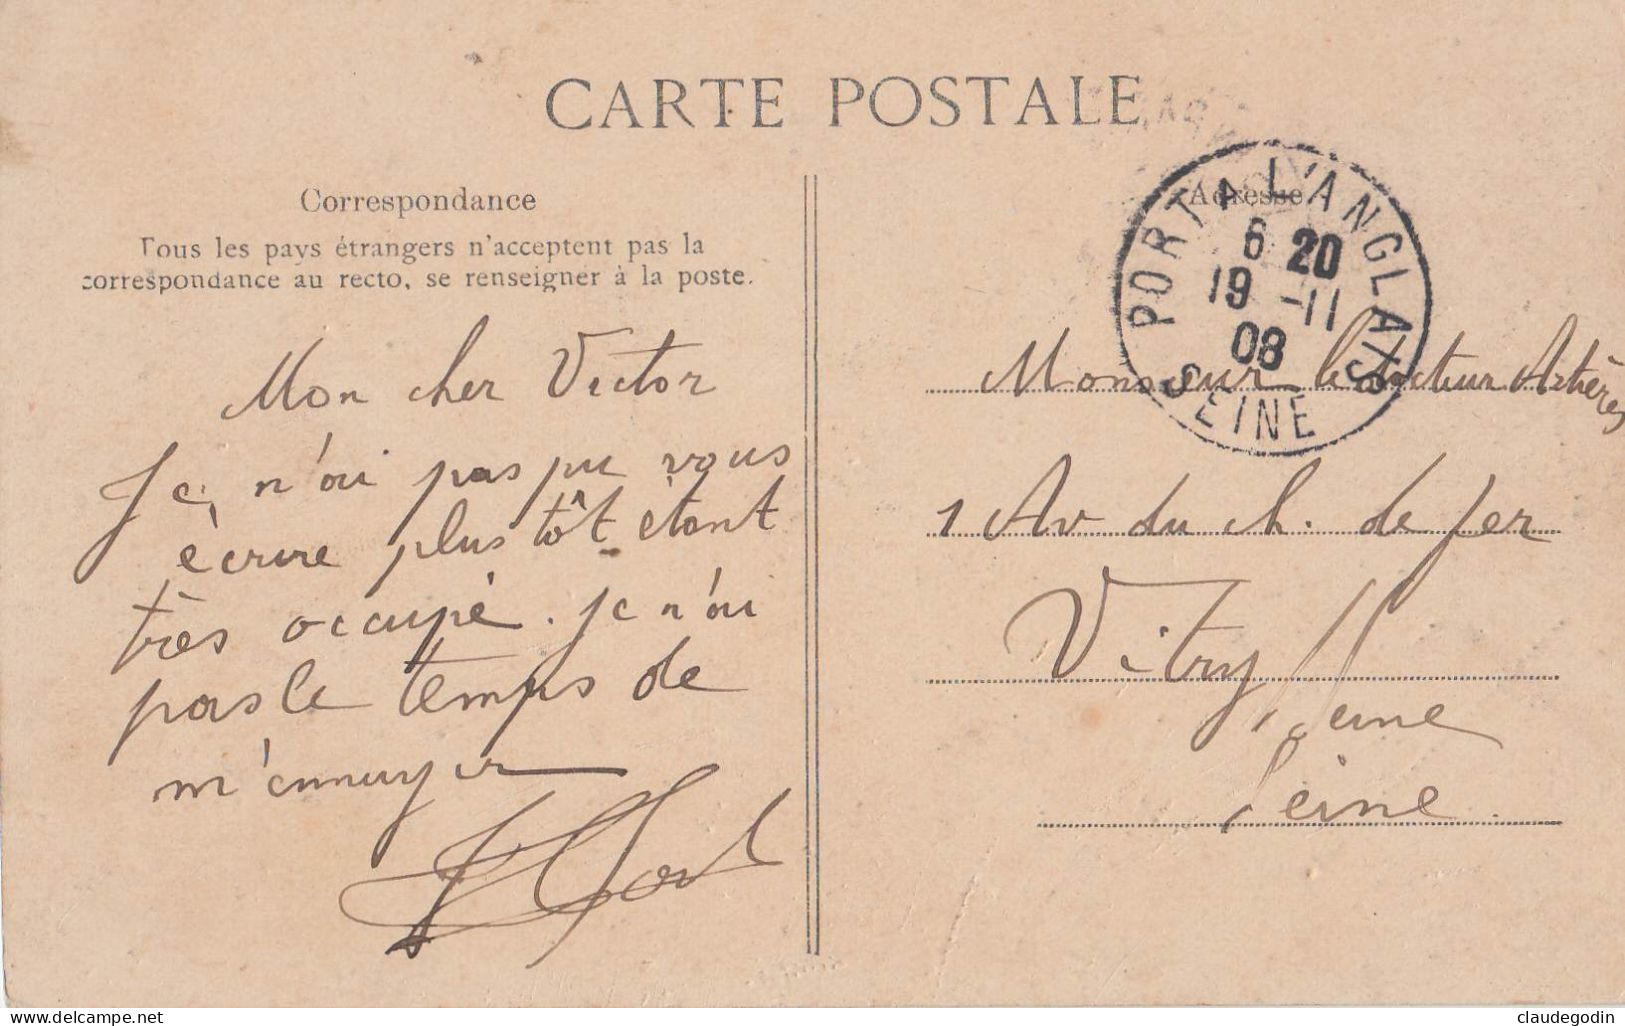 CARTE POSTALE
Correspondance
Tous les pays étrangers n'acceptent pas la
correspondance au recto, se renseigner à la poste.
Mon cher Victor
Je n'ai pas pu vous
écrire plus tôt étant
très occupé. Je n'ai
pas le temps de
m'ennuyer
Adresse
PORT A L'ANGLAIS
6 20
19 -11
08
SEINE
Monsieur le docteur
1 Av du ch. de fer
Vitry s/ Seine
Seine.
delcampe.net
claudegodin